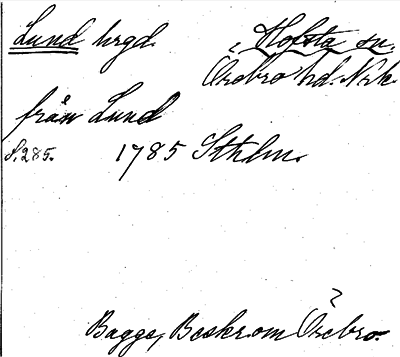 Lund hrgd.
Hofsta sn.
Örebro hd. Nrk.
från Lund
S. 285. 1785 Sthlm.
Bagge, Beskr. om Örebro.